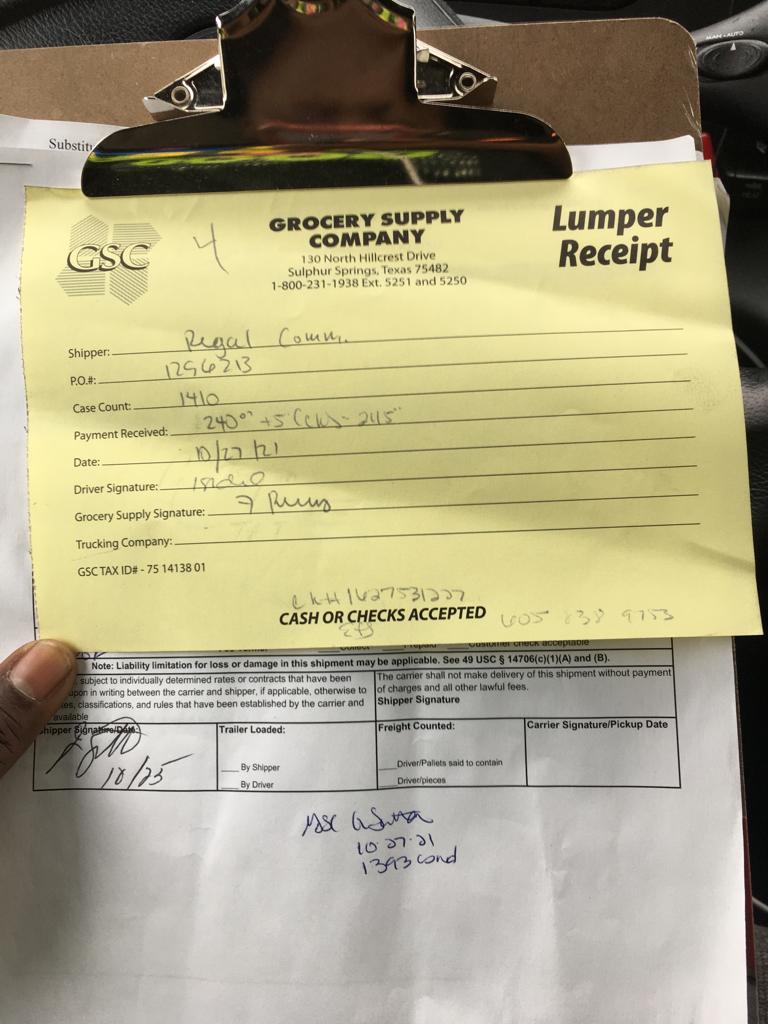 MAN - AUTO
Substitu
GSC
4
GROCERY SUPPLY
COMPANY
130 North Hillcrest Drive
Sulphur Springs, Texas 75482
1-800-231-1938 Ext. 5251 and 5250
Lumper
Receipt
Shipper: Regal Comm.
P.O.#: 1296213
Case Count: 1410
Payment Received: 240°° +5
Date: 10/27/21
Driver Signature:
Grocery Supply Signature:
Trucking Company:
GSC TAX ID# - 75 14138 01
1627531227
CASH OR CHECKS ACCEPTED
605 838 9753
Collect Prepaid Customer check acceptable
Note: Liability limitation for loss or damage in this shipment may be applicable. See 49 USC § 14706(c)(1)(A) and (B).
subject to individually determined rates or contracts that have been
upon in writing between the carrier and shipper, if applicable, otherwise to
classifications, and rules that have been established by the carrier and
available
The carrier shall not make delivery of this shipment without payment
of charges and all other lawful fees.
Shipper Signature
Shipper Signature/Date:
10/25
Trailer Loaded:
___ By Shipper
___ By Driver
Freight Counted:
___Driver/Pallets said to contain
___Driver/pieces
Carrier Signature/Pickup Date
GSC
10-27-21
1393 cond